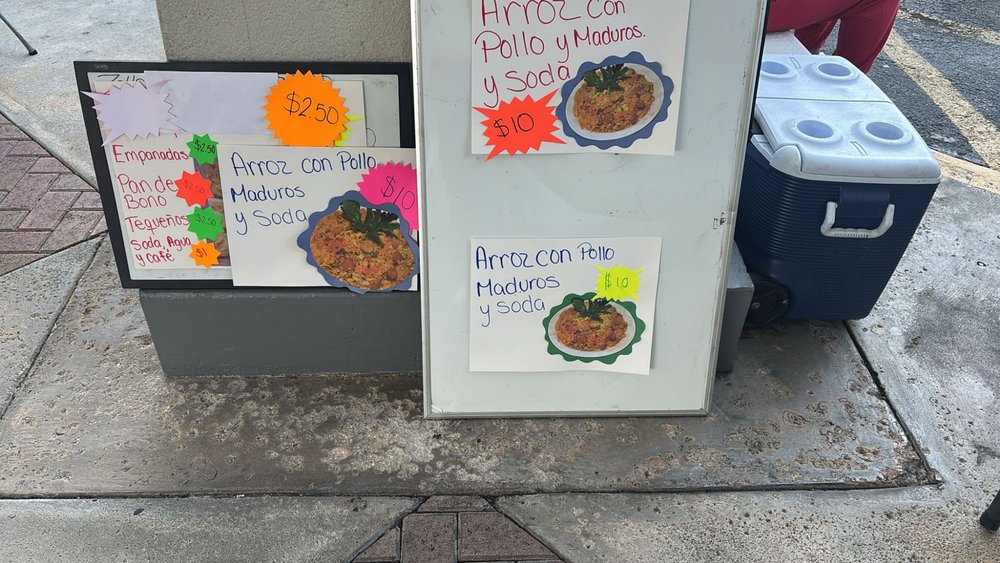 $2.50
Empanadas $2.50
Pan de $2.50
Bono
Tequeños $2.50
Soda, Agua $1
y café
Arroz con Pollo
Maduros $10
y Soda
Arroz con
Pollo y Maduros.
y Soda
$10
Arroz con Pollo
Maduros $10
y soda